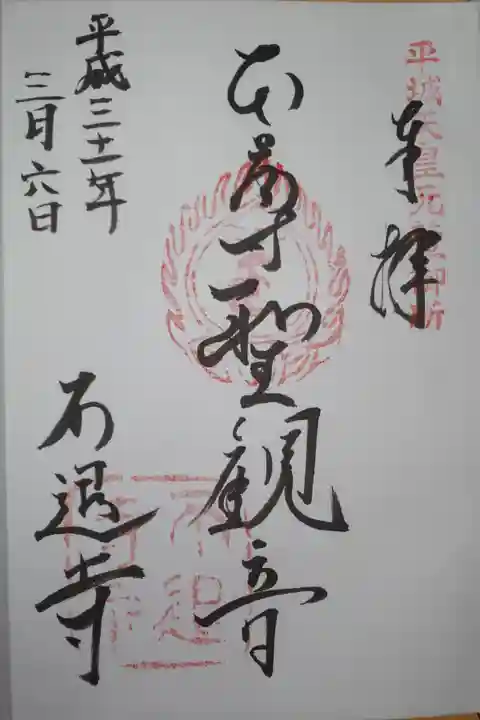 平城天皇元萱御所
奉拝
本尊聖観音
平成三十一年
三月六日
不退寺